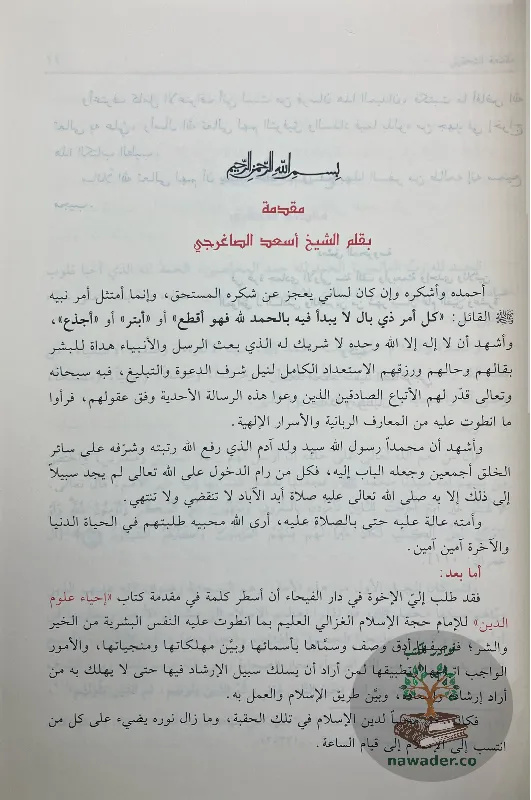 بِسْمِ اللهِ الرَّحْمٰنِ الرَّحِيمِ
مقدمة
بقلم الشيخ أسعد الصاغرجي
أحمده وأشكره وإن كان لساني يعجز عن شكره المستحق، وإنما أمتثل أمر نبيه
ﷺ القائل: «كل أمر ذي بال لا يبدأ فيه بالحمد لله فهو أقطع» أو «أبتر» أو «أجذع»،
وأشهد أن لا إله إلا الله وحده لا شريك له الذي بعث الرسل والأنبياء هداة للبشر
بقالهم وحالهم ورزقهم الاستعداد الكامل لنيل شرف الدعوة والتبليغ، فبه سبحانه
وتعالى قدّر لهم الأتباع الصادقين الذين وعوا هذه الرسالة الأحدية وفق عقولهم، فرأوا
ما انطوت عليه من المعارف الربانية والأسرار الإلهية.
وأشهد أن محمداً رسول الله سيد ولد آدم الذي رفع الله رتبته وشرّفه على سائر
الخلق أجمعين وجعله الباب إليه، فكل من رام الدخول على الله تعالى لم يجد سبيلاً
إلى ذلك إلا به صلى الله تعالى عليه صلاة أبد الآباد لا تنقضي ولا تنتهي.
وأمته عالة عليه حتى بالصلاة عليه، أرى الله محبيه طلبتهم في الحياة الدنيا
والآخرة آمين آمين.
أما بعد:
فقد طلب إليّ الإخوة في دار الفيحاء أن أسطر كلمة في مقدمة كتاب «إحياء علوم
الدين» للإمام حجة الإسلام الغزالي العليم بما انطوت عليه النفس البشرية من الخير
والشر؛ أدق وصف وسمّاها بأسمائها وبيّن مهلكاتها ومنجياتها، والأمور
الواجب لمن أراد أن يسلك سبيل الإرشاد فيها حتى لا يهلك به من
أراد وبيّن طريق الإسلام والعمل به.
لدين الإسلام في تلك الحقبة، وما زال نوره يضيء على كل من
انتسب إلى الإسلام إلى قيام الساعة.
nawader.co